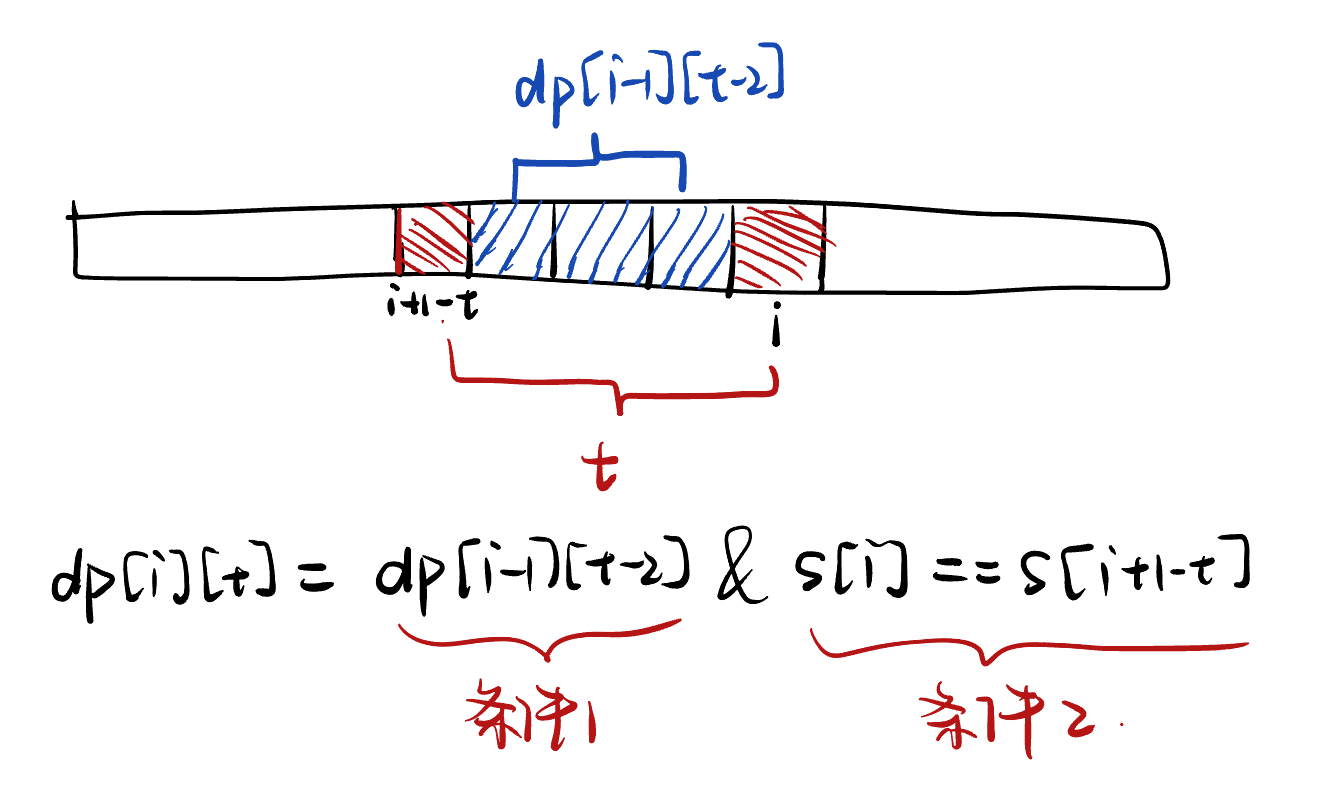 dp[i-1][t-2]
i+1-t
i
t
dp[i][t] = dp[i-1][t-2] & s[i] == s[i+1-t]
条件1 条件2.